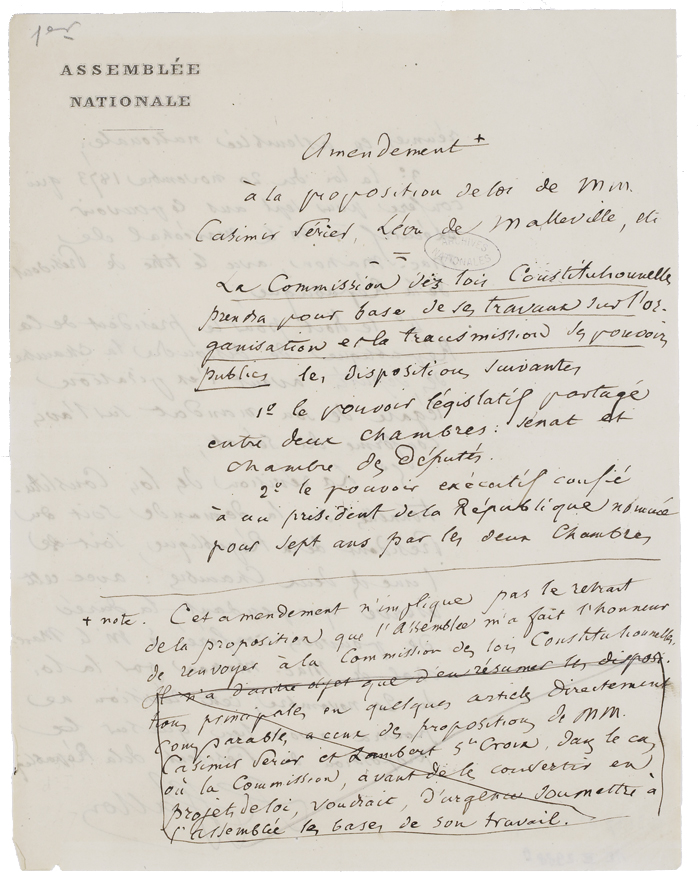 1er
ASSEMBLÉE
NATIONALE
Amendement +
à la proposition de loi de MM.
Casimir Périer, Léon de Malleville, etc
ARCHIVES NATIONALES
La Commission des lois Constitutionnelles
prendra pour base de ses travaux sur l'or-
ganisation et la transmission des pouvoirs
publics les dispositions suivantes
1º le pouvoir législatif partagé
entre deux chambres : sénat et
chambre des Députés.
2º le pouvoir exécutif confié
à un président de la République nommé
pour sept ans par les deux Chambres
+ note. Cet amendement n'implique pas le retrait
de la proposition que l'Assemblée m'a fait l'honneur
de renvoyer à la Commission des lois Constitutionnelles.
Il n'a d'autre objet que d'en résumer les disposi-
tions principales en quelques articles directement
comparables à ceux des propositions de MM.
Casimir Périer et Lambert Ste Croix, dans le cas
où la Commission, avant de le convertir en
projet de loi, voudrait, d'urgence soumettre à
l'assemblée les bases de son travail.